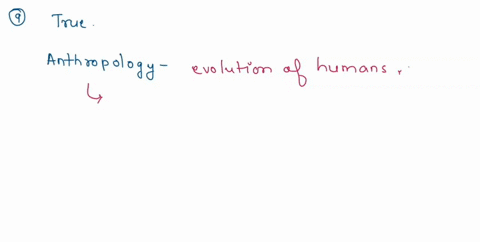 9 True.
Anthropology - evolution of humans,